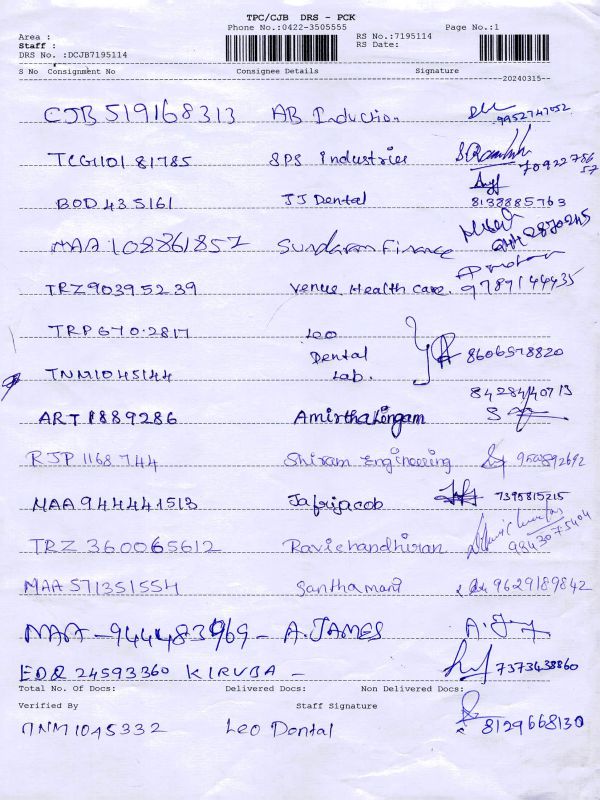 TPC/CJB DRS - PCK
Phone No.:0422-3505555 Page No.:1
Area : RS No.:7195114
Staff : RS Date:
DRS No. :DCJB7195114
S No Consignment No Consignee Details Signature
20240315--
CJB 519168313 AB Induction 9952747052
TCG1101 81785 SPS Industries 70922786 57
BOD 435161 JJ Dental 8132885763
MAA 108861857 Sundaram Finance
TRZ 90395239 Venue Health care. 9787144435
TRP 670.2817 Leo Dental Lab. 8606578820
TNM1045144
ART 1889286 Amirthalingam
RJP 1168744 Shiram Engineering
MAA 944441513 Jafrijacob 7395815215
TRZ 360065612 Ravichandhiran 9843075404
MAA 571351554 Santhamani 9629189842
MAA -944483969- A. JAMES
EDQ 24593360 KIRUBA - 7373438860
Total No. Of Docs: Delivered Docs: Non Delivered Docs:
Verified By Staff Signature
TNM1045332 Leo Dental 8129668130